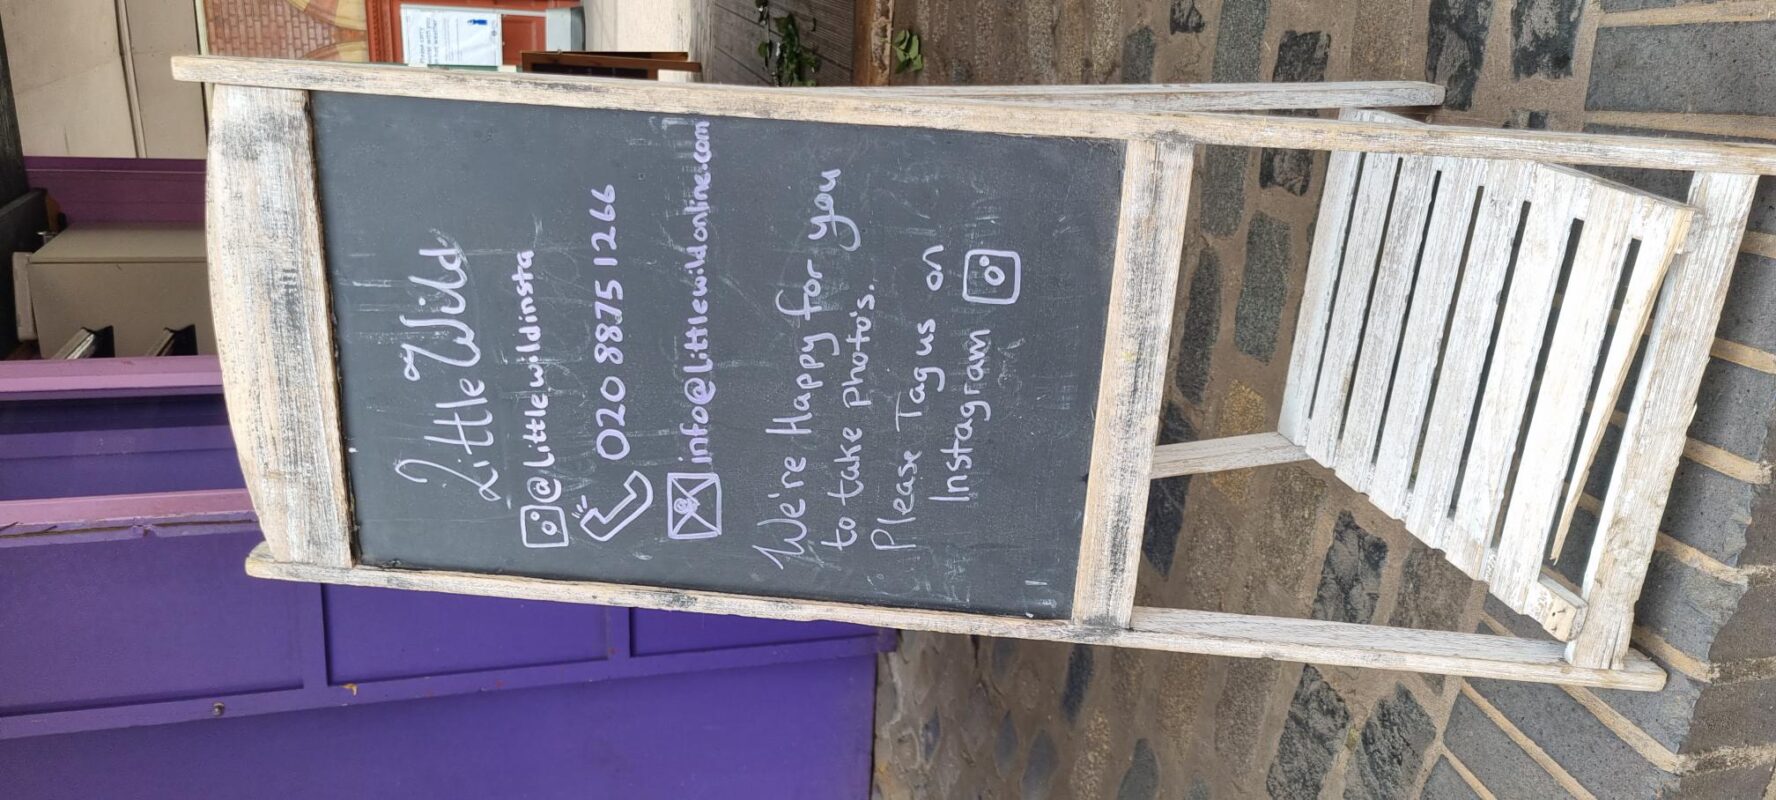 Little Wild
@littlewildinsta
020 8875 1266
info@littlewildonline.com
We're Happy for you
to take photo's.
Please Tag us on
Instagram